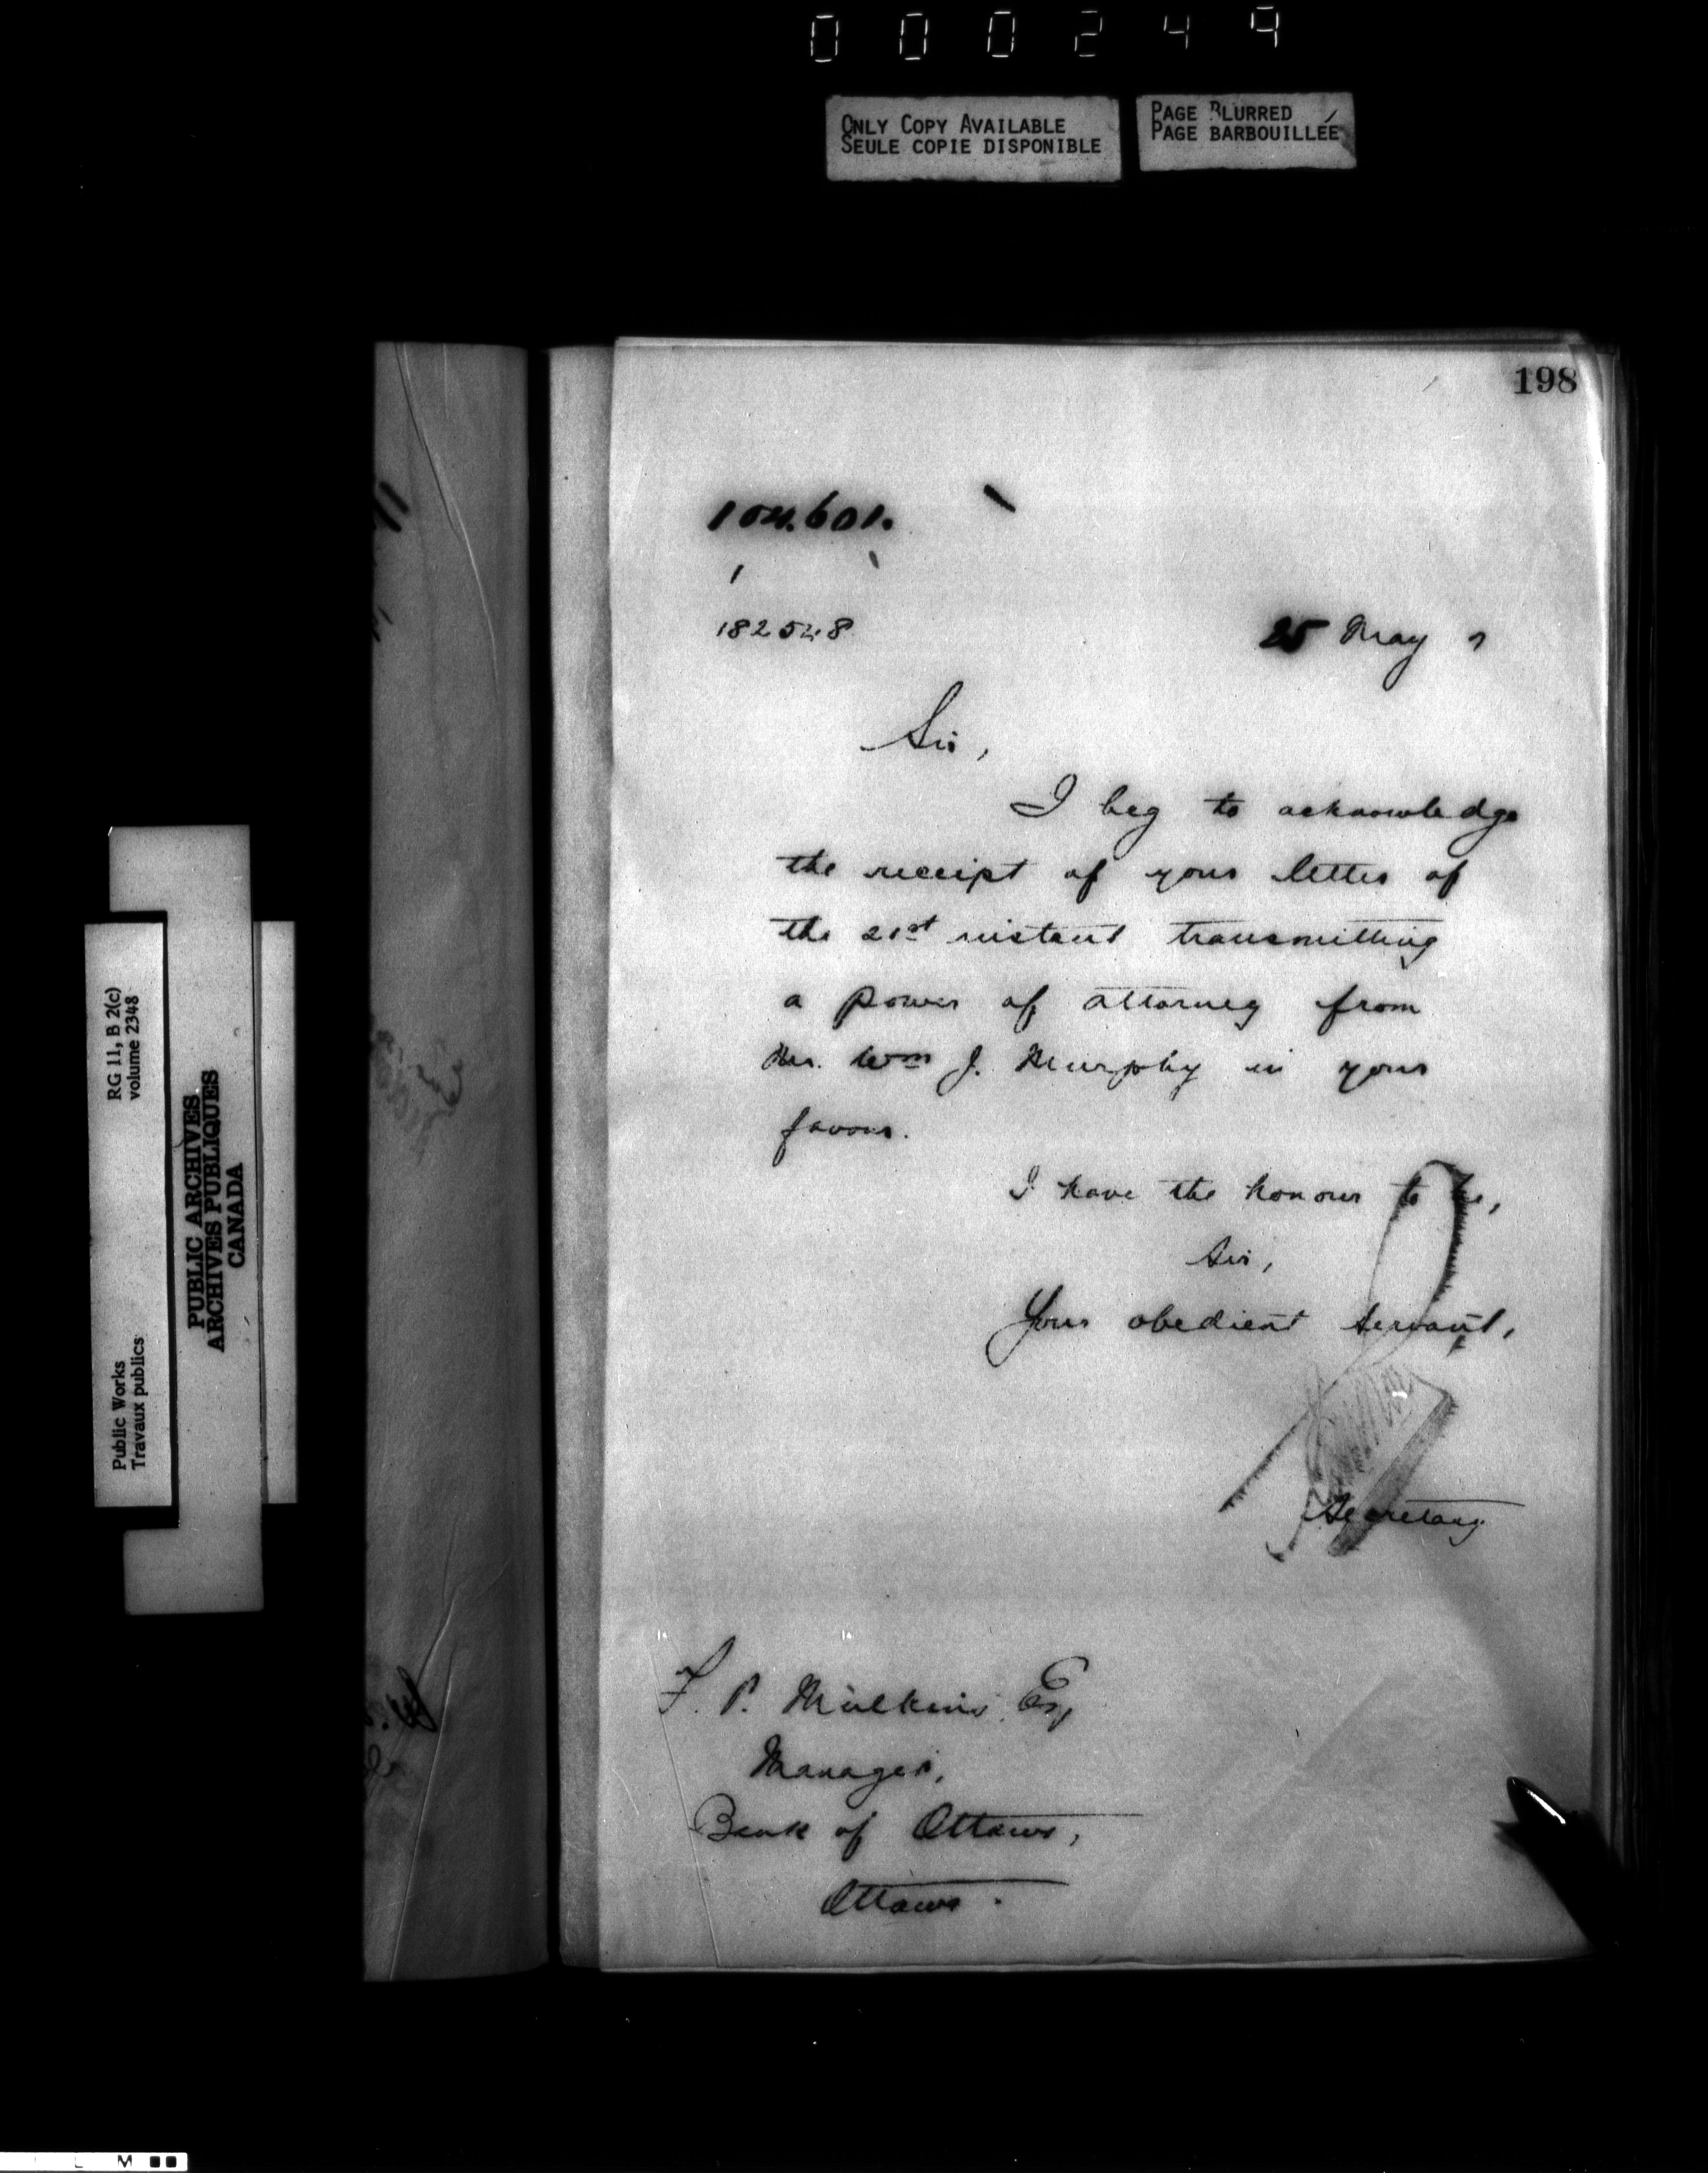 000249
ONLY COPY AVAILABLE
SEULE COPIE DISPONIBLE
PAGE BLURRED
PAGE BARBOUILLÉE
198
104.601.
1
182548
25 May 7
Sir,
I beg to acknowledge
the receipt of your letter of
the 21st instant transmitting
a power of attorney from
Mr. Wm J. Murphy in your
favour.
I have the honour to be,
Sir,
Your obedient servant,
Secretary
F. P. Mulkins Esq
Manager,
Bank of Ottawa,
Ottawa.
RG 11, B 2(c)
volume 2348
Public Works
Travaux publics
PUBLIC ARCHIVES
ARCHIVES PUBLIQUES
CANADA